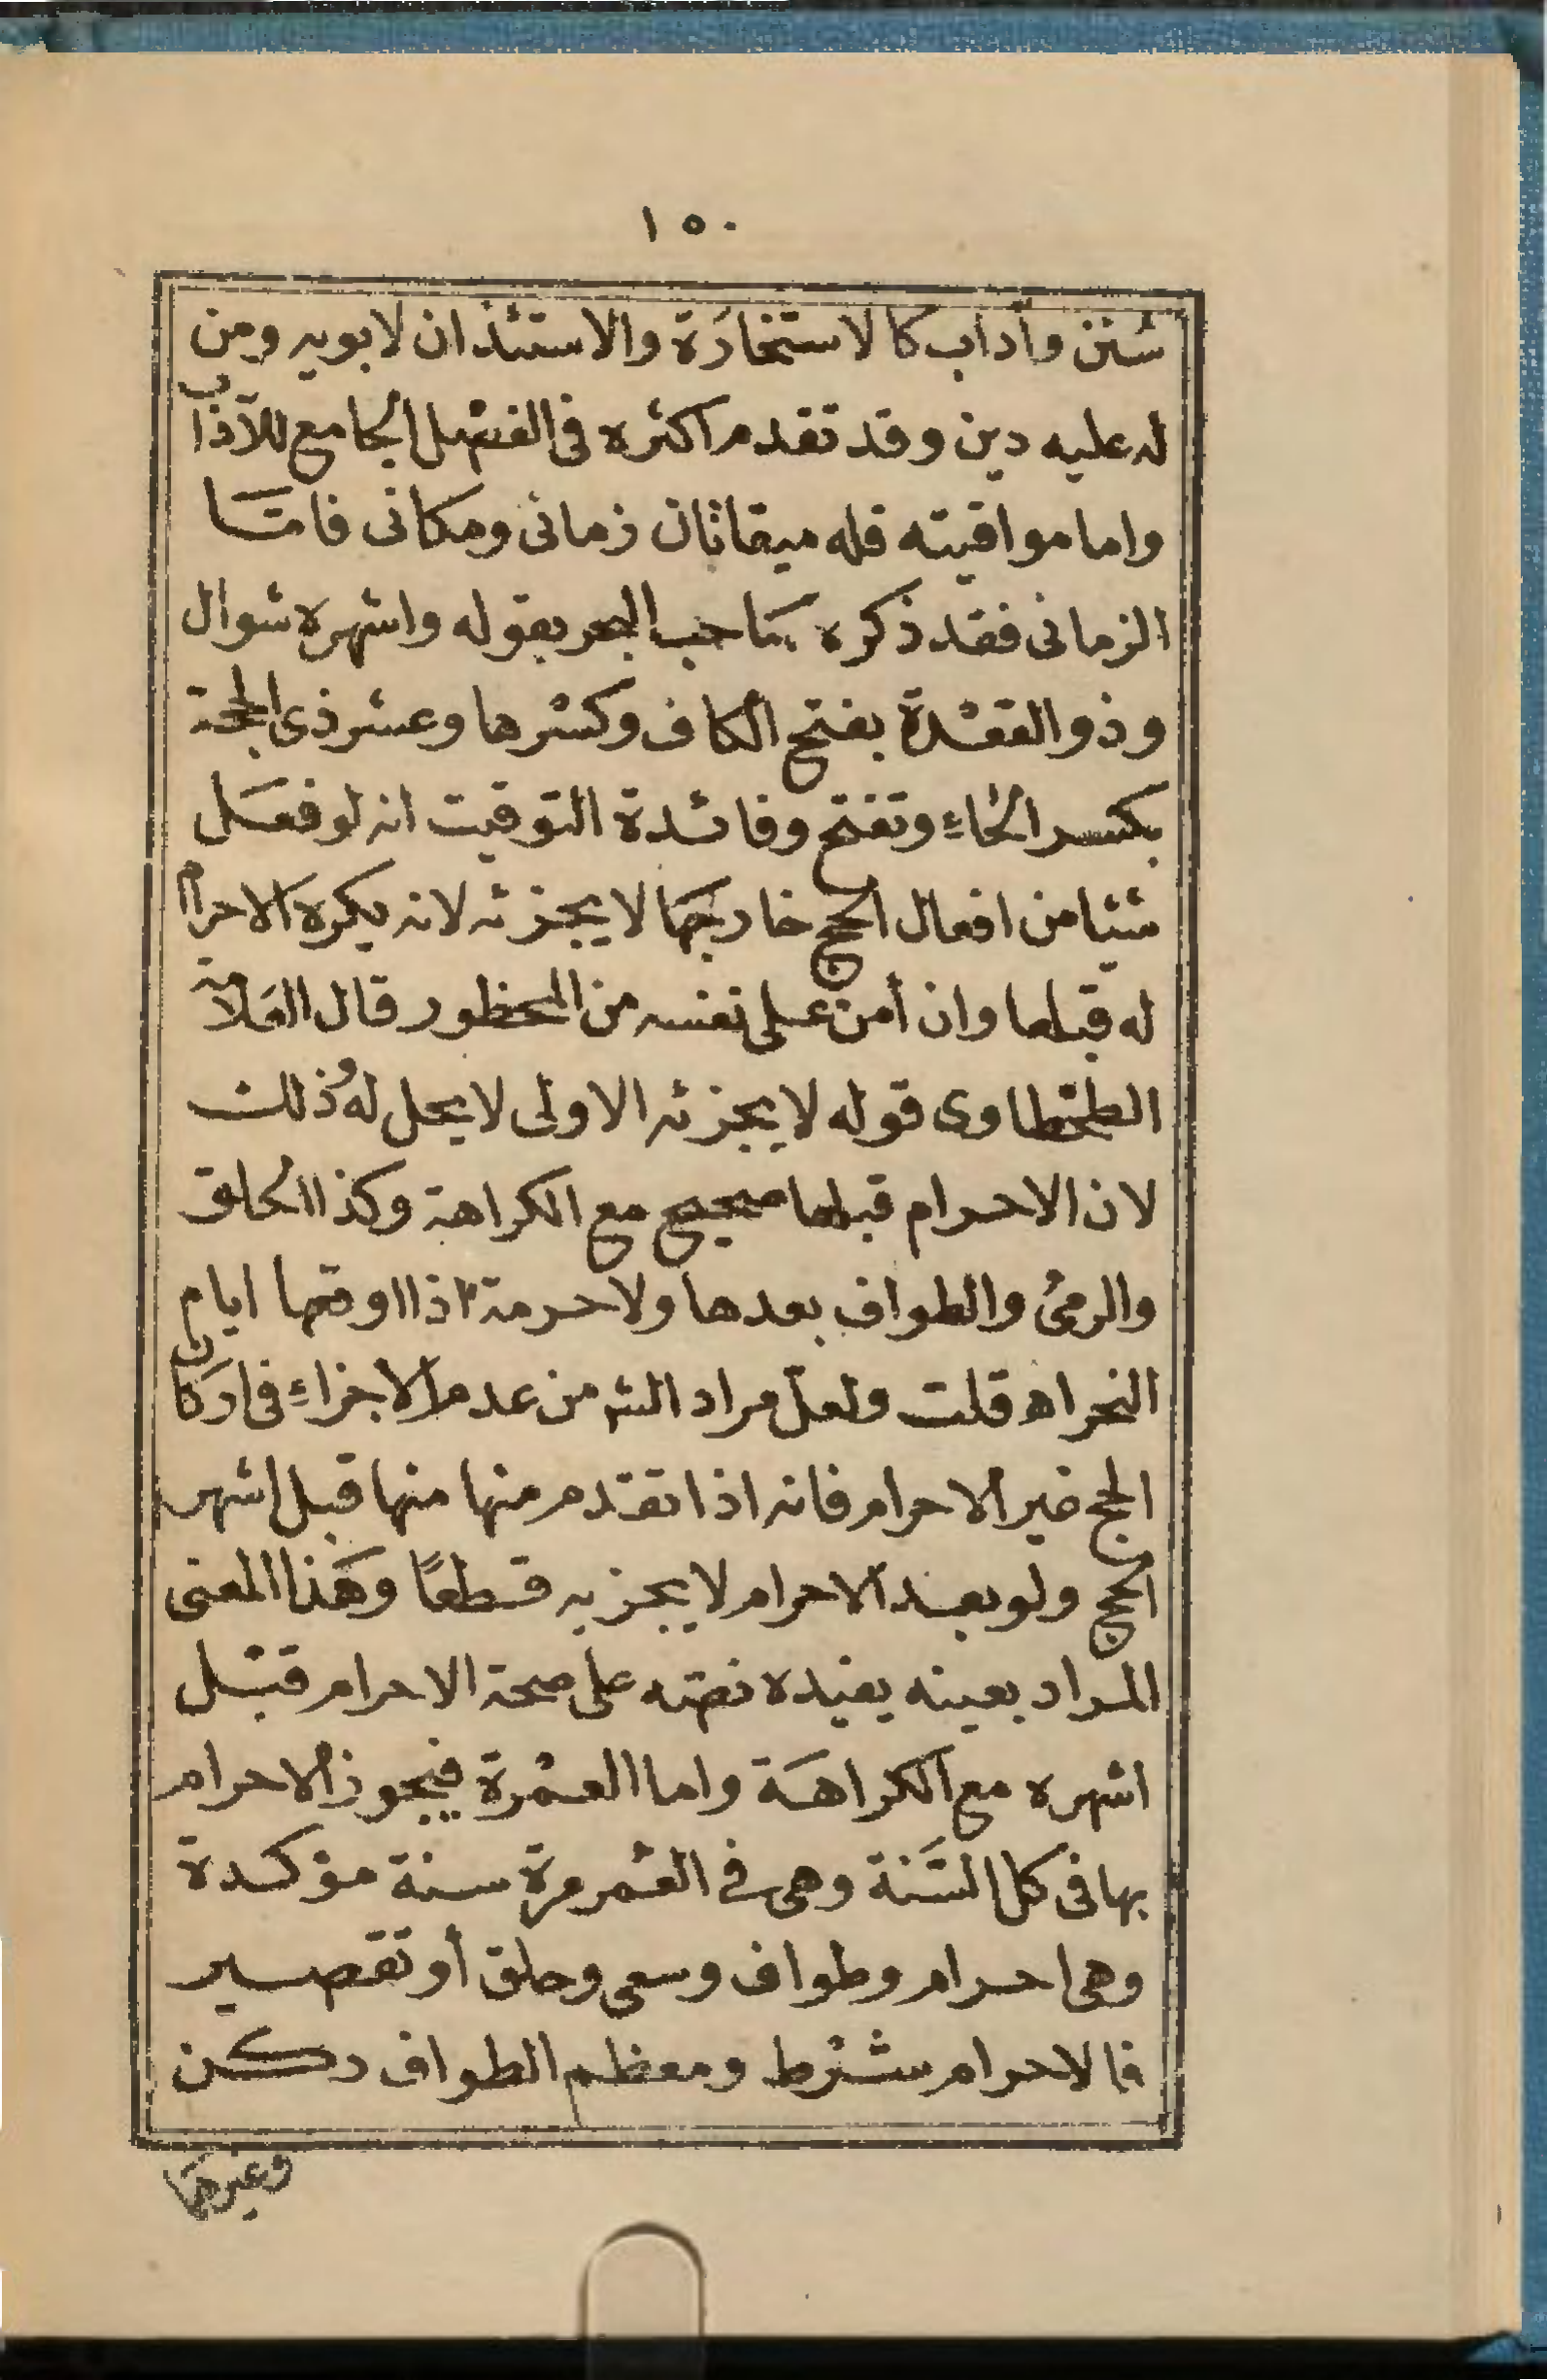 ١٥٠
سنن وآداب كالاستخارة والاستئذان لابويه ومن
له عليه دين وقد تقدم اكثره فى الفصل الجامع للآداب
واما مواقيته فله ميقاتان زمانى ومكانى فامّا
الزمانى فقد ذكره صاحب البحر بقوله واشهره شوال
وذو القعْدة بفتح الكاف وكسرها وعشر ذى الحجة
بكسر الحاءِ وتفتح وفائدة التوقيت انه لو فعَل
شيئا من افعال الحج خارجها لا يجزئه لانه يكره الاحرام
له قبلها وان أمن على نفسه من المحظور قال العَلامة
الطحْطاوى قوله لا يجزئه الاولى لا يحل له وذلك
لان الاحرام قبلها صحيح مع الكراهة وكذا الحلق
والرمى والطواف بعدها ولا حرمة اذا اوقعها ايام
النحر اه قلت ولعلّ مراد الشر من عدم الاجزاءِ فى اركان
الحج غير الاحرام فانه اذا تقدم منها منها قبل اشهر
الحج ولو بعد الاحرام لا يجزيه قطعًا وهَذا المعنى
المراد بعينه يفيده نصّه على صحة الاحرام قبْل
اشهره مع الكراهَة واما العمْرة فيجوز الاحرام
بها فى كل السَّنة وهى فى العمْر مرة سنة مؤكدة
وهى احرام وطواف وسعى وحلق أو تقصير
فالاحرام شرْط ومعظم الطواف ركن
وغيرهما